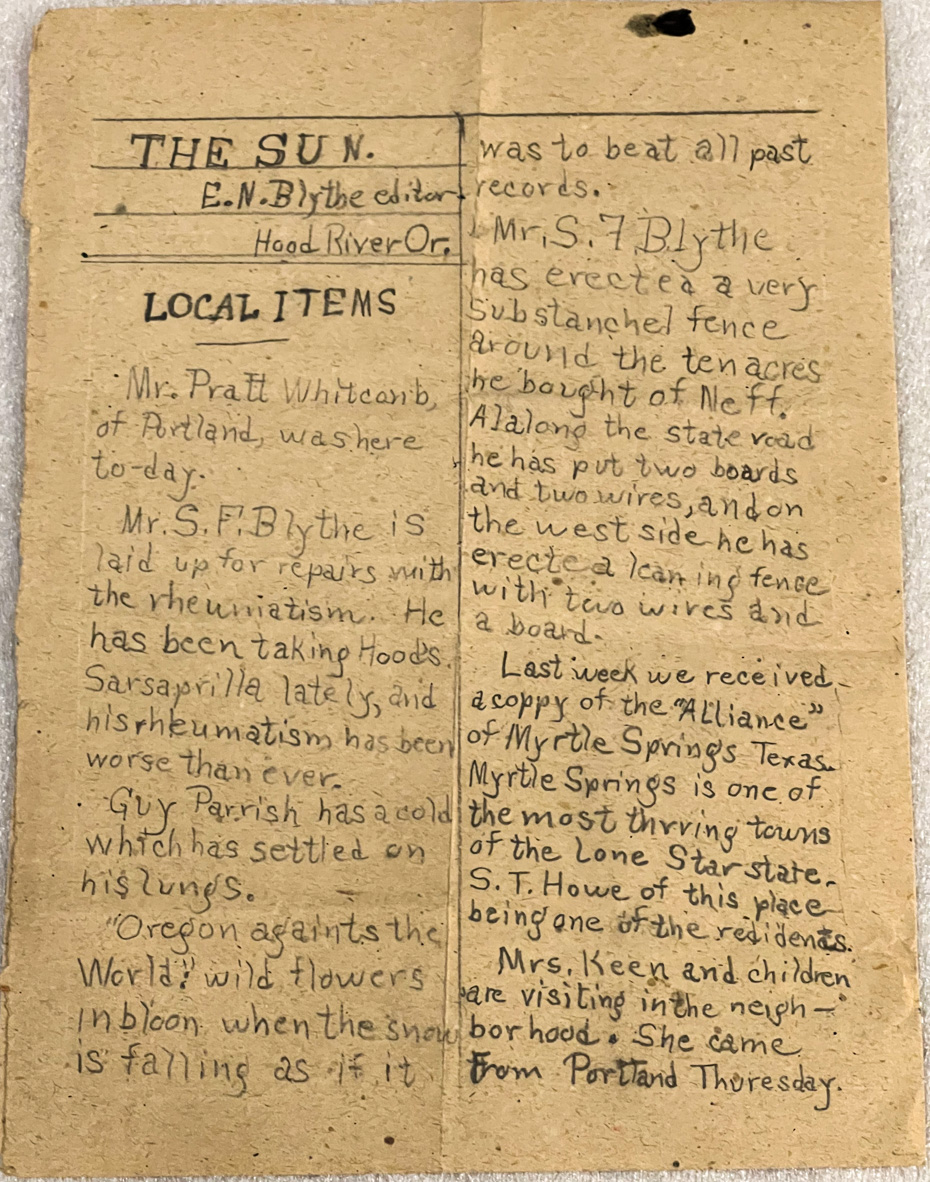 THE SUN.
E.N.Blythe editor-
Hood River Or.
LOCAL ITEMS
Mr. Pratt Whitcomb,
of Portland, was here
to-day.
Mr. S. F. Blythe is
laid up for repairs with
the rheumatism. He
has been taking Hood's.
Sarsaprilla lately, and
his rheumatism has been
worse than ever.
Guy Parrish has a cold
which has settled on
his lungs.
"Oregon againts the
World!" wild flowers
in bloon when the snow
is falling as if it
was to beat all past
records.
Mr. S. F. Blythe
has erected a very
Substanchel fence
around the ten acres
he bought of Neff.
Alalong the state road
he has put two boards
and two wires, and on
the west side he has
erected a leaning fence
with two wires and
a board.
Last week we received
a coppy of the "Alliance"
of Myrtle Springs Texas.
Myrtle Springs is one of
the most thrving towns
of the Lone Star state.
S. T. Howe of this place
being one of the redidents.
Mrs. Keen and children
are visiting in the neigh-
borhood. She came
from Portland Thuresday.